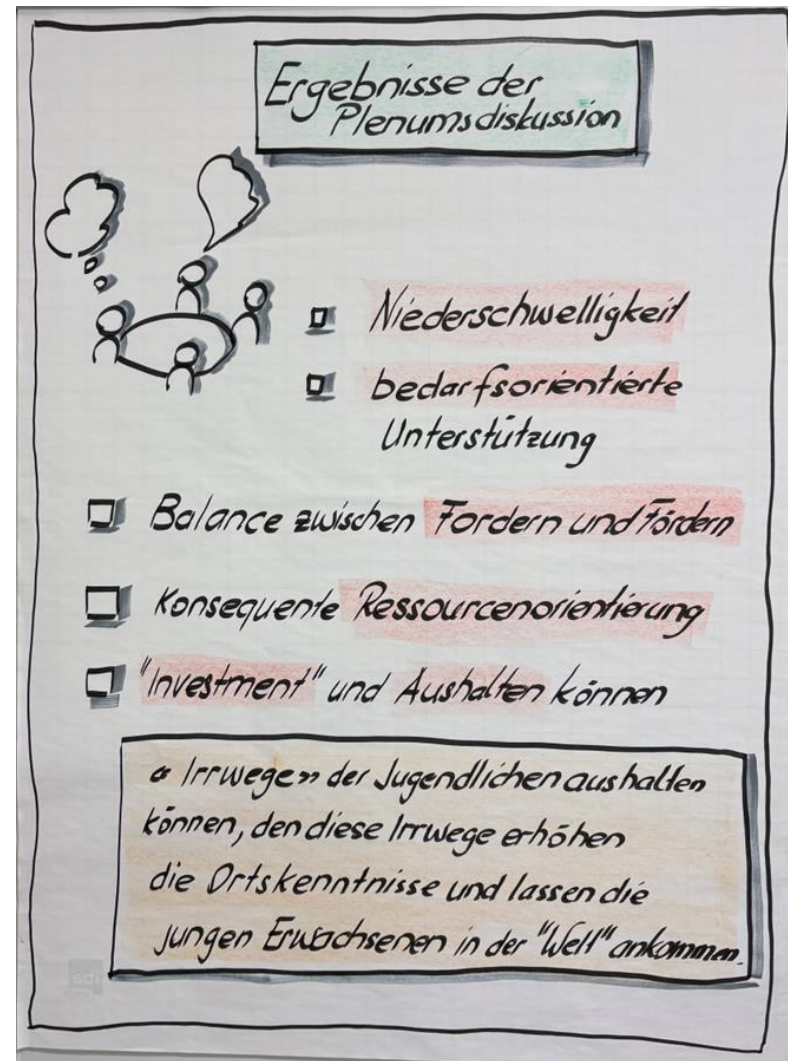 Ergebnisse der
Plenumsdiskussion
Niederschwelligkeit
bedarfsorientierte
Unterstützung
Balance zwischen Fordern und Fördern
Konsequente Ressourcenorientierung
"Investment" und Aushalten können
«Irrwege» der Jugendlichen aushalten
können, den diese Irrwege erhöhen
die Ortskenntnisse und lassen die
jungen Erwachsenen in der "Welt" ankommen.